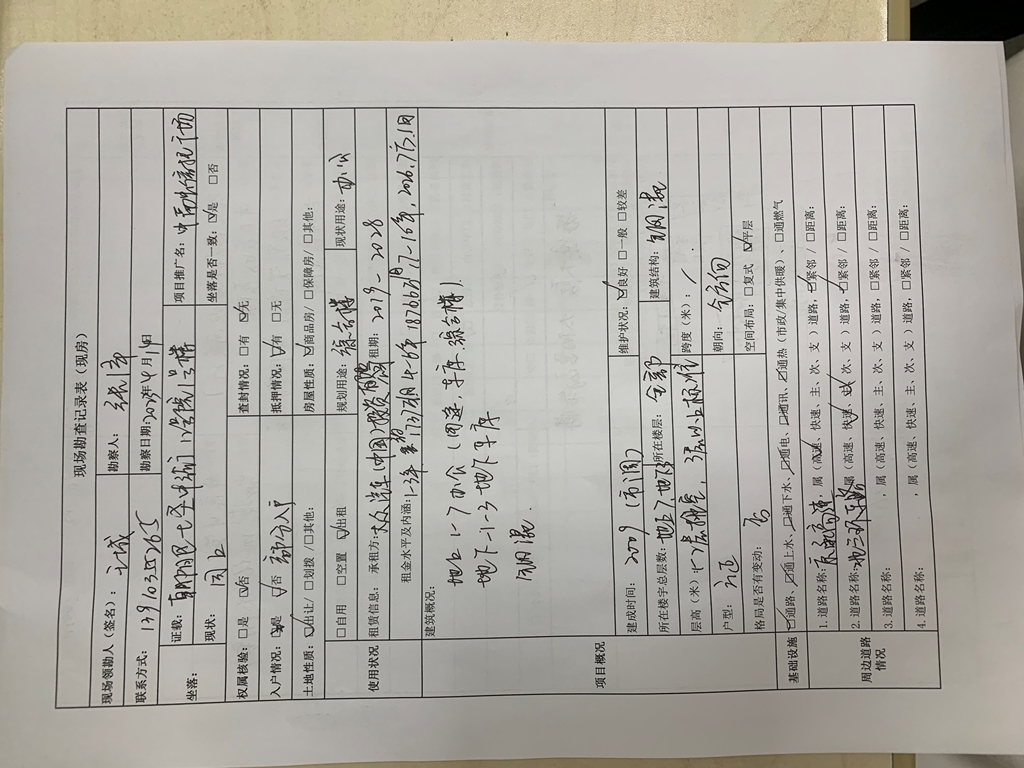 现场勘查记录表（现房）
现场领勘人（签名）： 勘察人：
联系方式：13910355265 勘察日期：2025年4月14日
坐落： 证载：朝阳区七圣中街12号院1号楼 项目推广名：
现状：同上 坐落是否一致：☑是 □否
权属核验：□是 ☑否 查封情况：□有 ☑无
入户情况：☑是 □否 部分入户 抵押情况：☑有 □无
土地性质：☑出让 □划拨 /□其他： 房屋性质：☑商品房/ □保障房/ □其他：
使用状况 □自用 □空置 ☑出租 规划用途：综合楼 现状用途：办公
租赁信息：承租方：大众汽车(中国)投资有限 租期：2019-2028
租金水平及内涵：1-3年
项目概况 建筑概况：
地上1-7办公
地下-1-3地下车库
钢混.
建成时间：2009 维护状况：☑良好 □一般 □较差
所在楼宇总层数：地上7地下3 所在楼层：全部 建筑结构：钢混
层高（米）： 跨度（米）：/
户型：方正 朝向：
格局是否有变动：否 空间布局：□复式 ☑平层
基础设施 ☑通路、☑通上水、☑通下水、☑通电、☑通讯、☑通热（市政/集中供暖）□通燃气
周边道路情况 1. 道路名称：京承高速，属（高速、快速、主、次、支）道路，☑紧邻 / □距离：
2. 道路名称：北三环东路，属（高速、快速、主、次、支）道路，☑紧邻 / □距离：
3. 道路名称： ，属（高速、快速、主、次、支）道路，□紧邻 / □距离：
4. 道路名称： ，属（高速、快速、主、次、支）道路，□紧邻 / □距离：